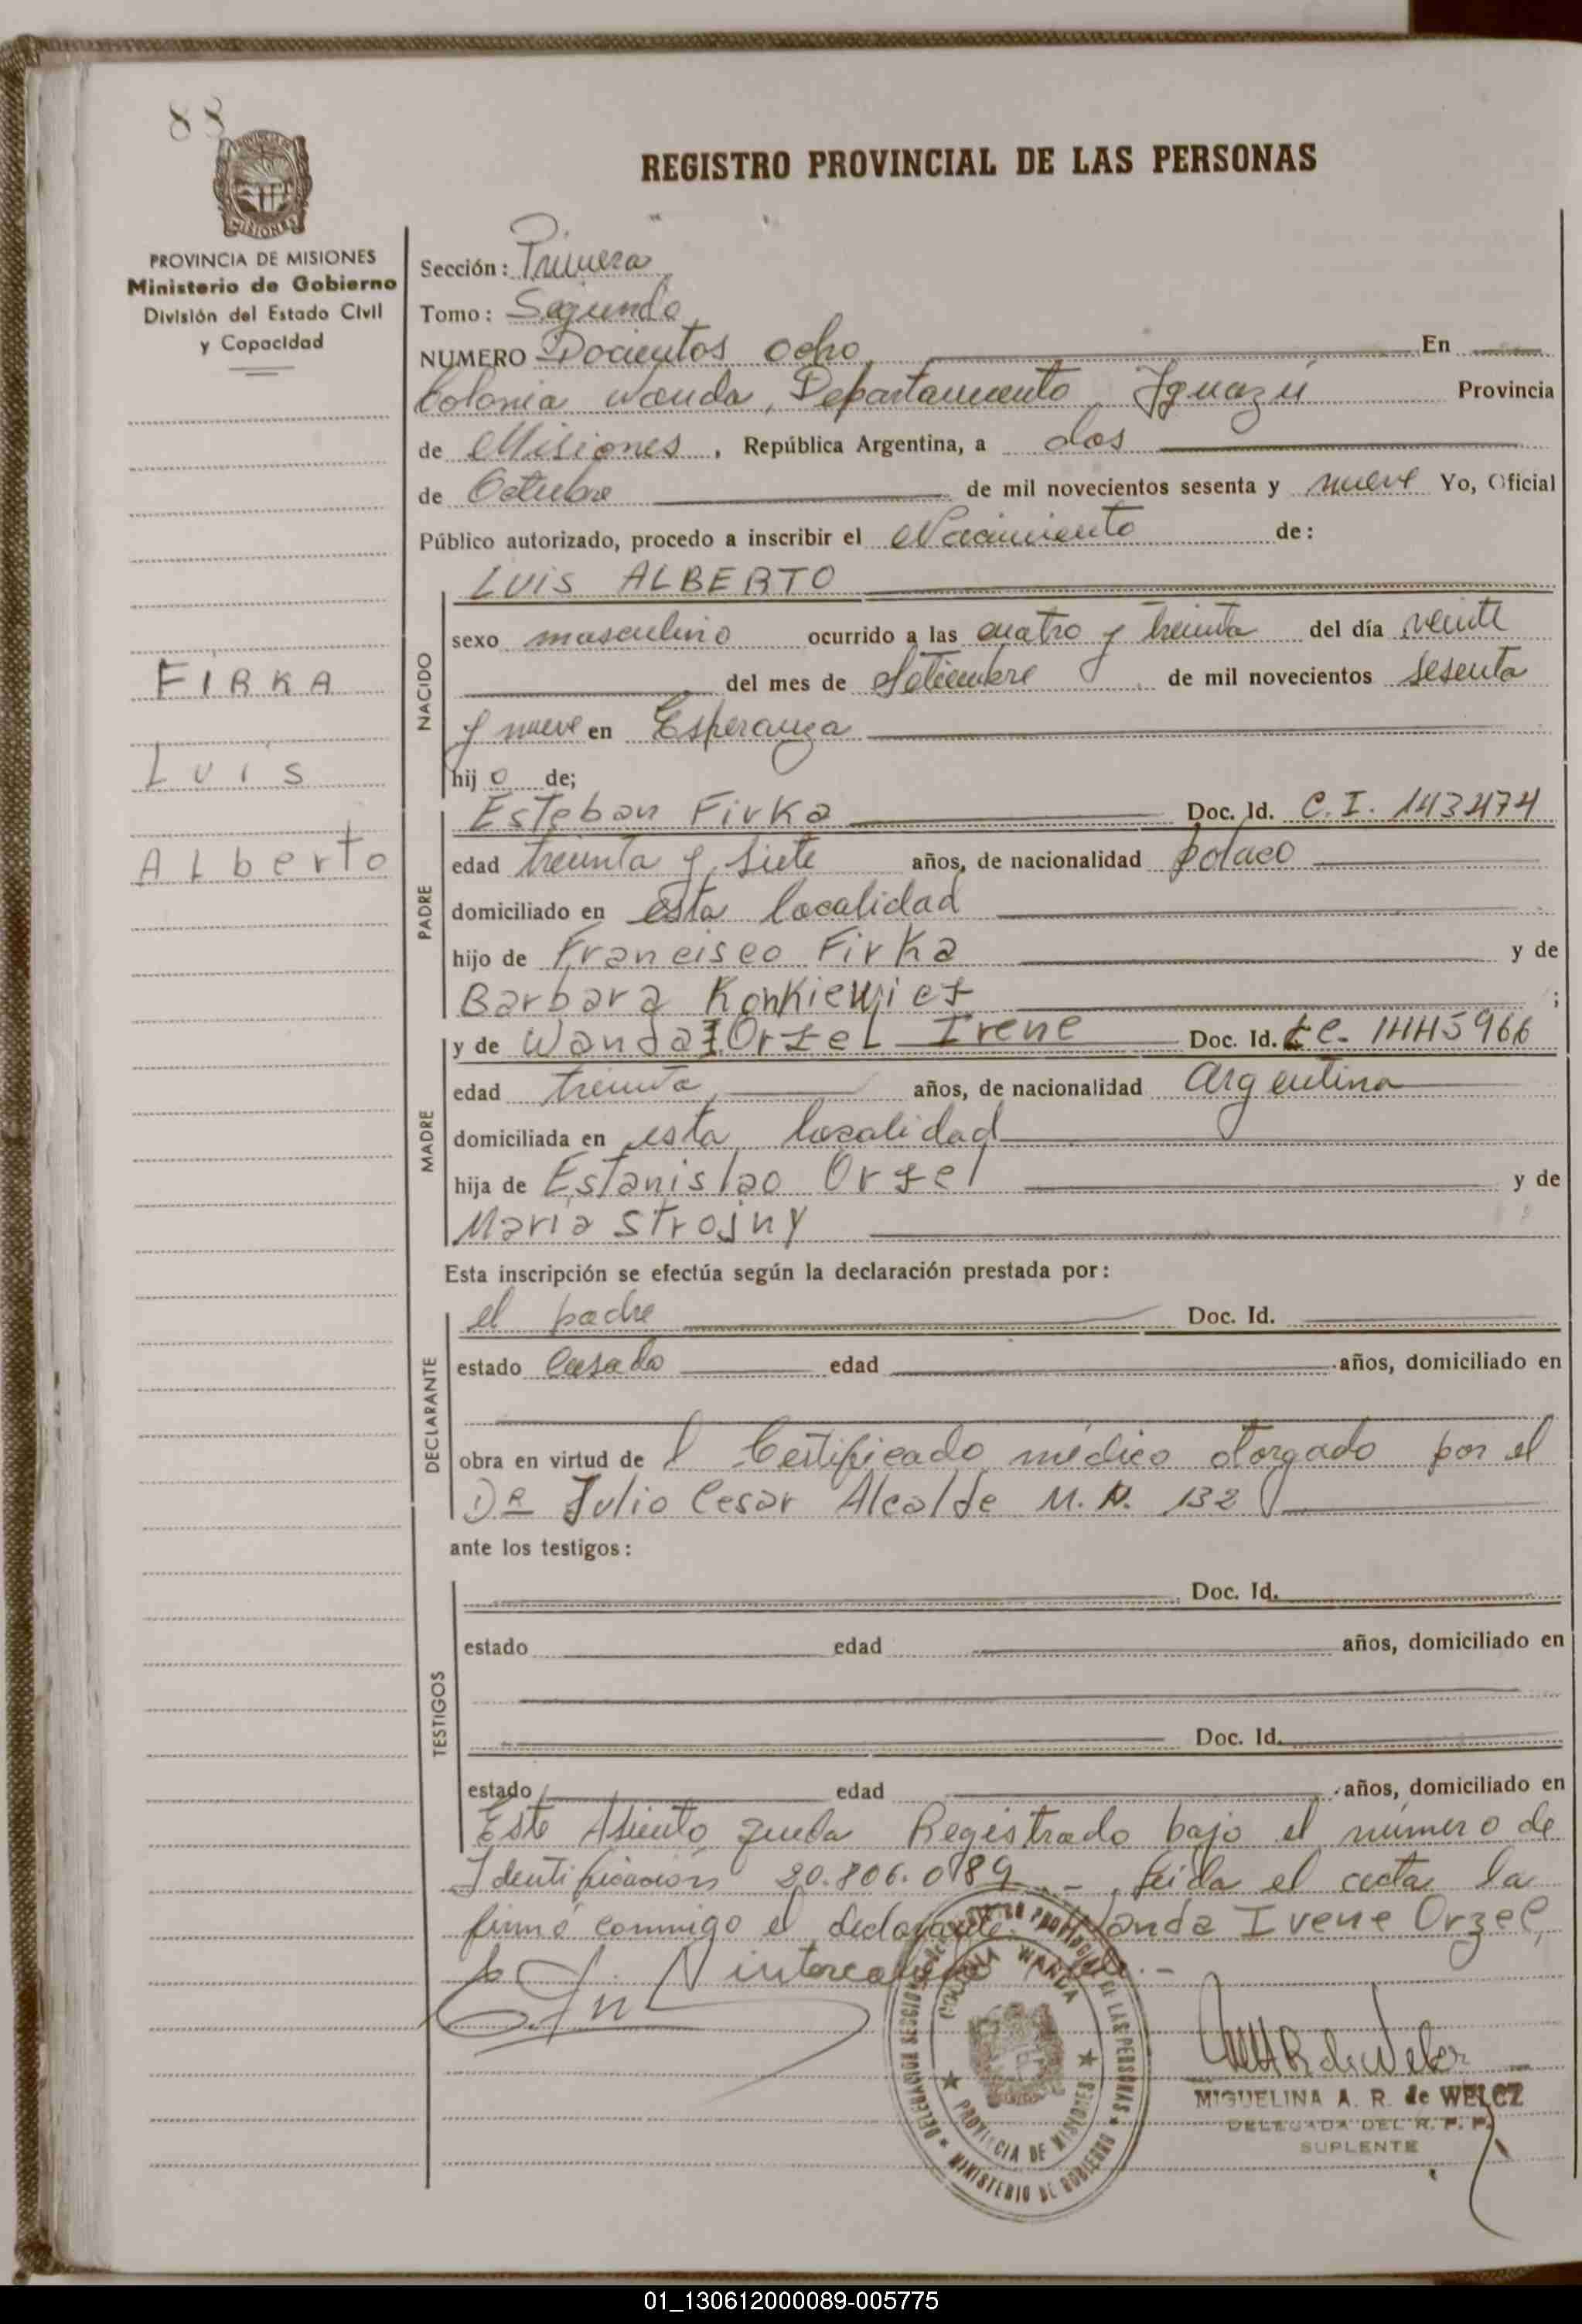 88
REGISTRO PROVINCIAL DE LAS PERSONAS
PROVINCIA DE MISIONES
Ministerio de Gobierno
División del Estado Civil
y Capacidad
FIRKA
Luis
Alberto
Sección: Primera
Tomo: Segundo
NUMERO Docientos ocho En
Colonia Wanda, Departamento Iguazú Provincia
de Misiones, República Argentina, a dos
de Octubre de mil novecientos sesenta y nueve Yo, Oficial
Público autorizado, procedo a inscribir el Nacimiento de:
NACIDO
LUIS ALBERTO
sexo masculino ocurrido a las cuatro y treinta del día veinte
del mes de Setiembre de mil novecientos sesenta
y nueve en Esperanza
hijo de;
PADRE
Esteban Firka Doc. Id. C.I. 143474
edad treinta y siete años, de nacionalidad polaco
domiciliado en esta localidad
hijo de Francisco Firka y de
Barbara Konkiewicz ;
MADRE
y de Wanda Orzel Irene Doc. Id. L.C. 1445966
edad treinta años, de nacionalidad Argentina
domiciliada en esta localidad
hija de Estanislao Orzel y de
Maria Strojny
Esta inscripción se efectúa según la declaración prestada por:
DECLARANTE
el padre Doc. Id.
estado Casado edad años, domiciliado en
obra en virtud de l Certificado médico otorgado por el
Dr Julio Cesar Alcalde M.N. 132
ante los testigos:
TESTIGOS
Doc. Id.
estado edad años, domiciliado en
Doc. Id.
estado edad años, domiciliado en
Este Asiento queda Registrado bajo el número de
Identificación 20.806.089.- Leida el acta la
firmó conmigo el declarante. Wanda Irene Orzel,
intercalado vale.-
DELEGACION SECCIONAL REGISTRO PROVINCIAL DE LAS PERSONAS
COLONIA WANDA
PROVINCIA DE MISIONES
MINISTERIO DE GOBIERNO
MIGUELINA A. R. de WELCZ
DELEGADA DEL R. P. P.
SUPLENTE
01_130612000089-005775